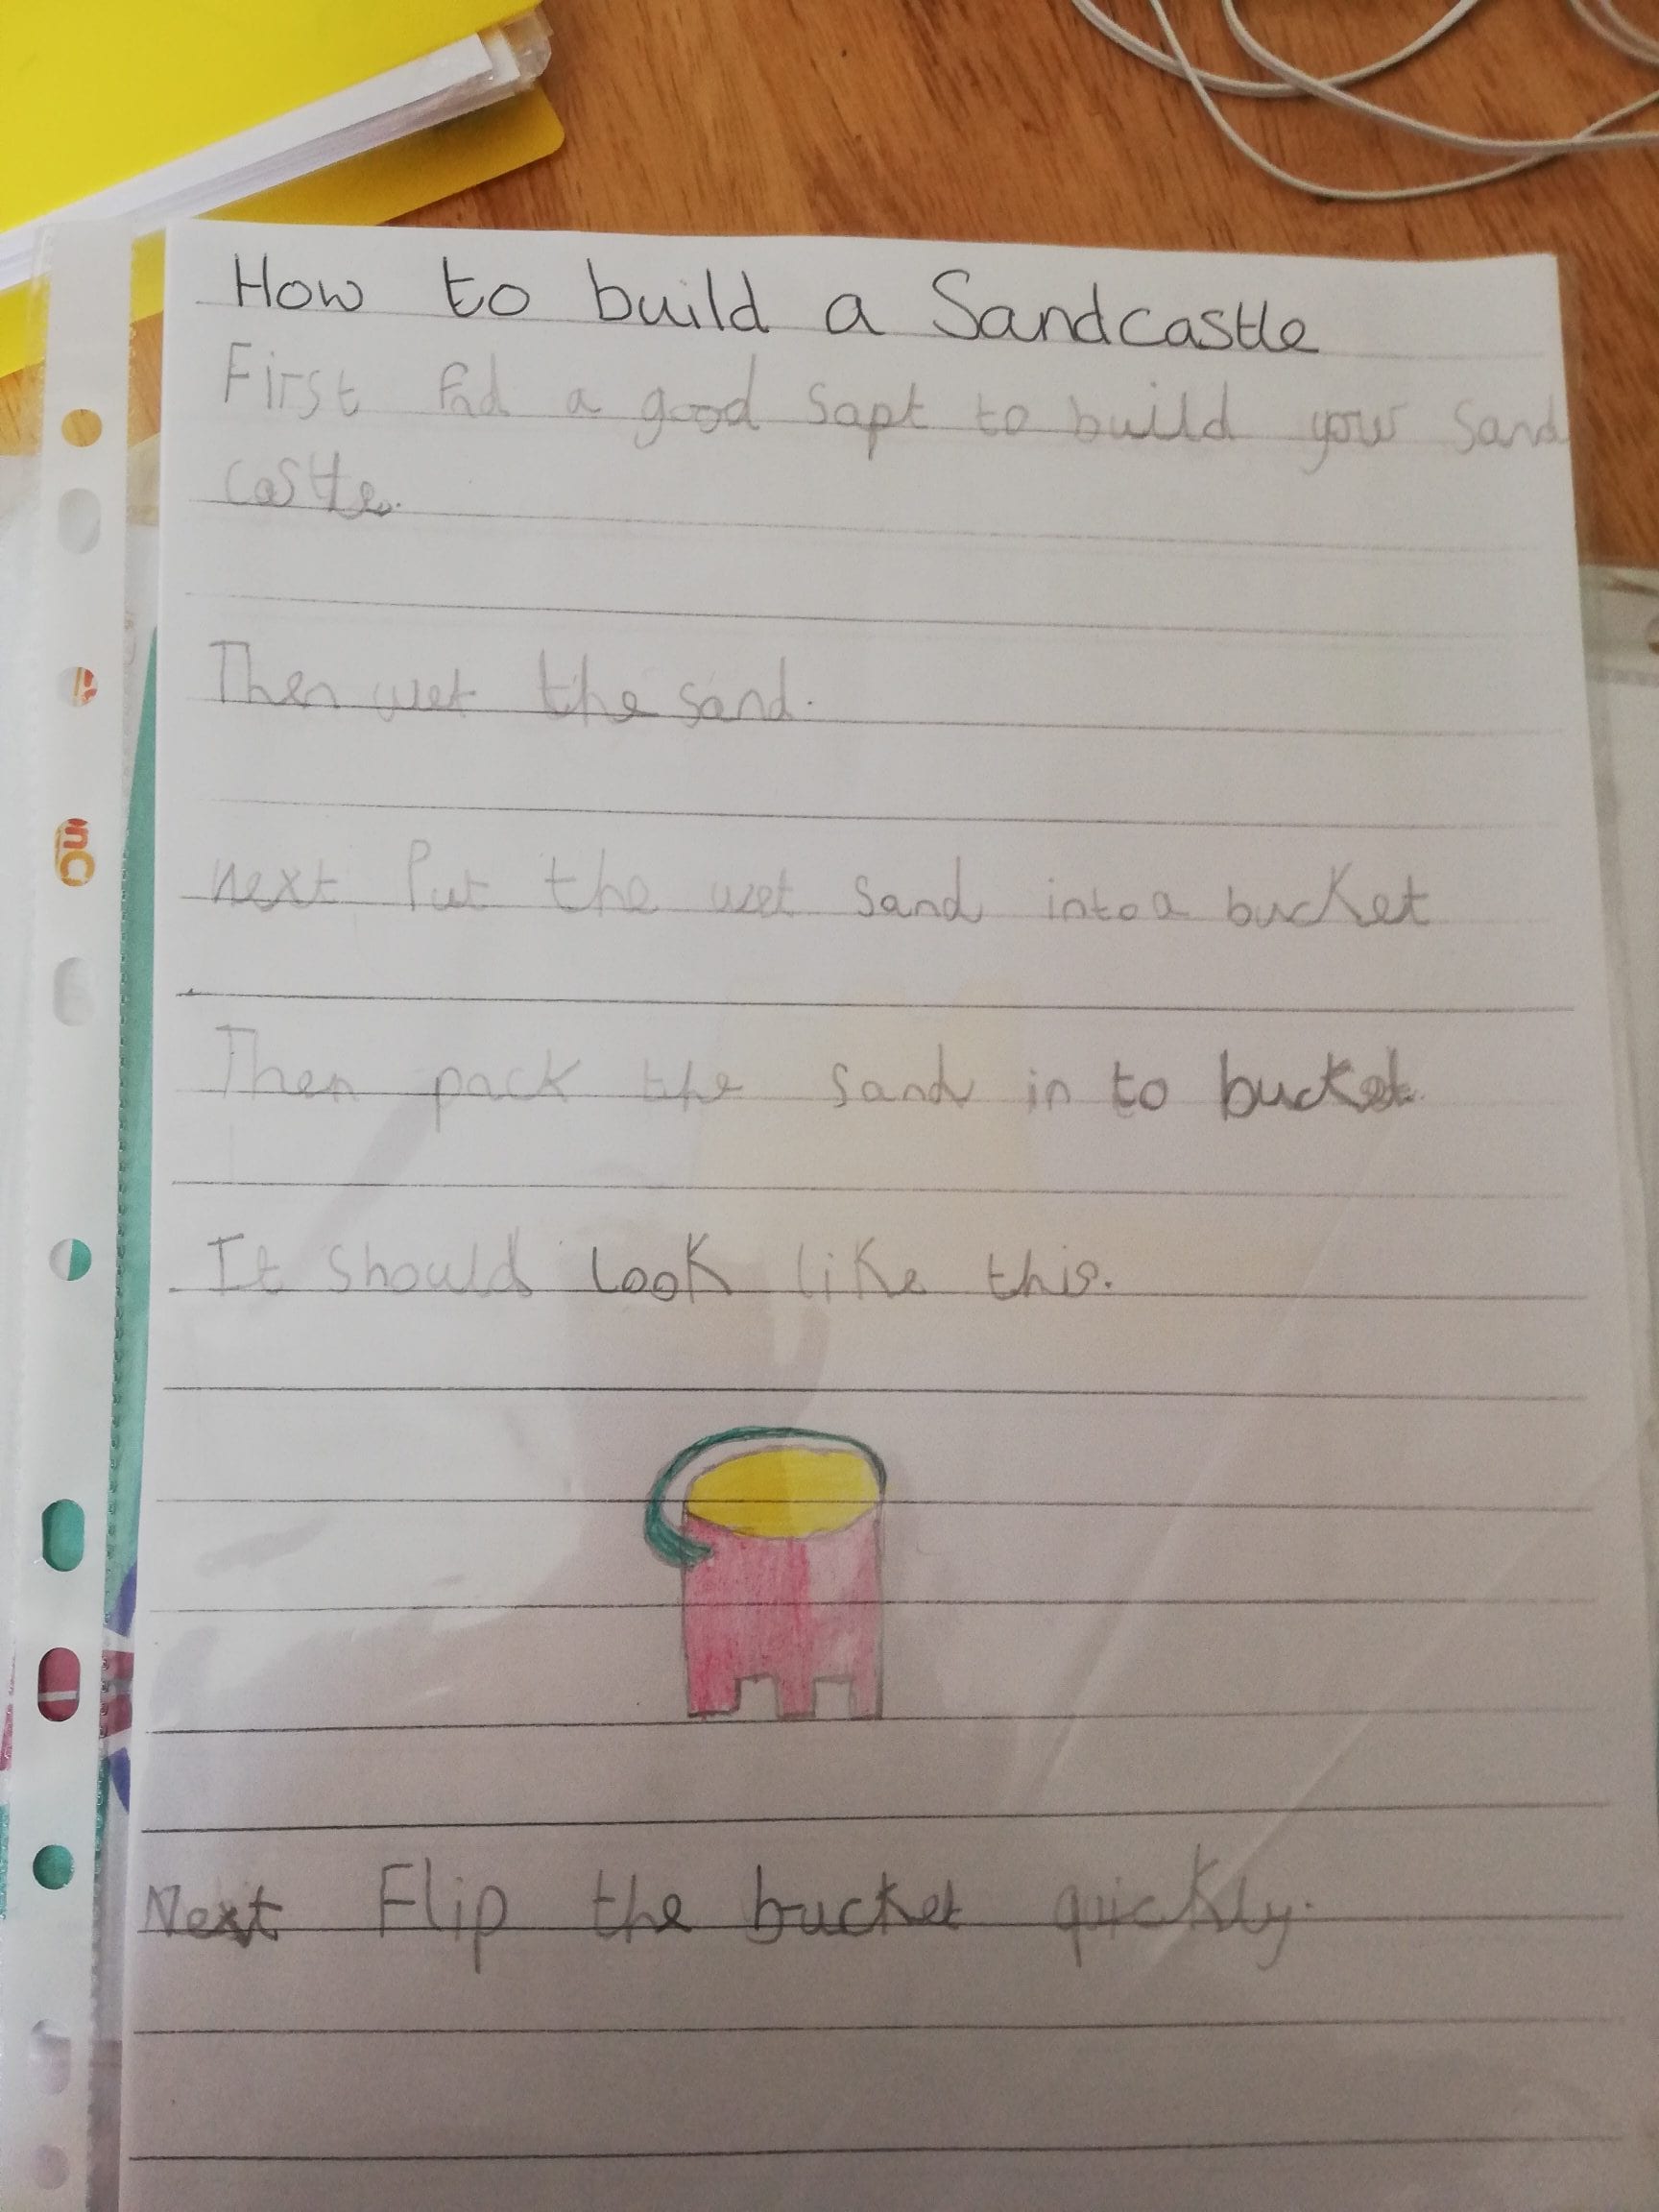 How to build a Sandcastle
First find a good sapt to build your sand
castle.
Then wet the sand.
next Put the wet sand into a bucket
Then pack the sand in to bucket.
It should look like this.
Next Flip the bucket quickly.